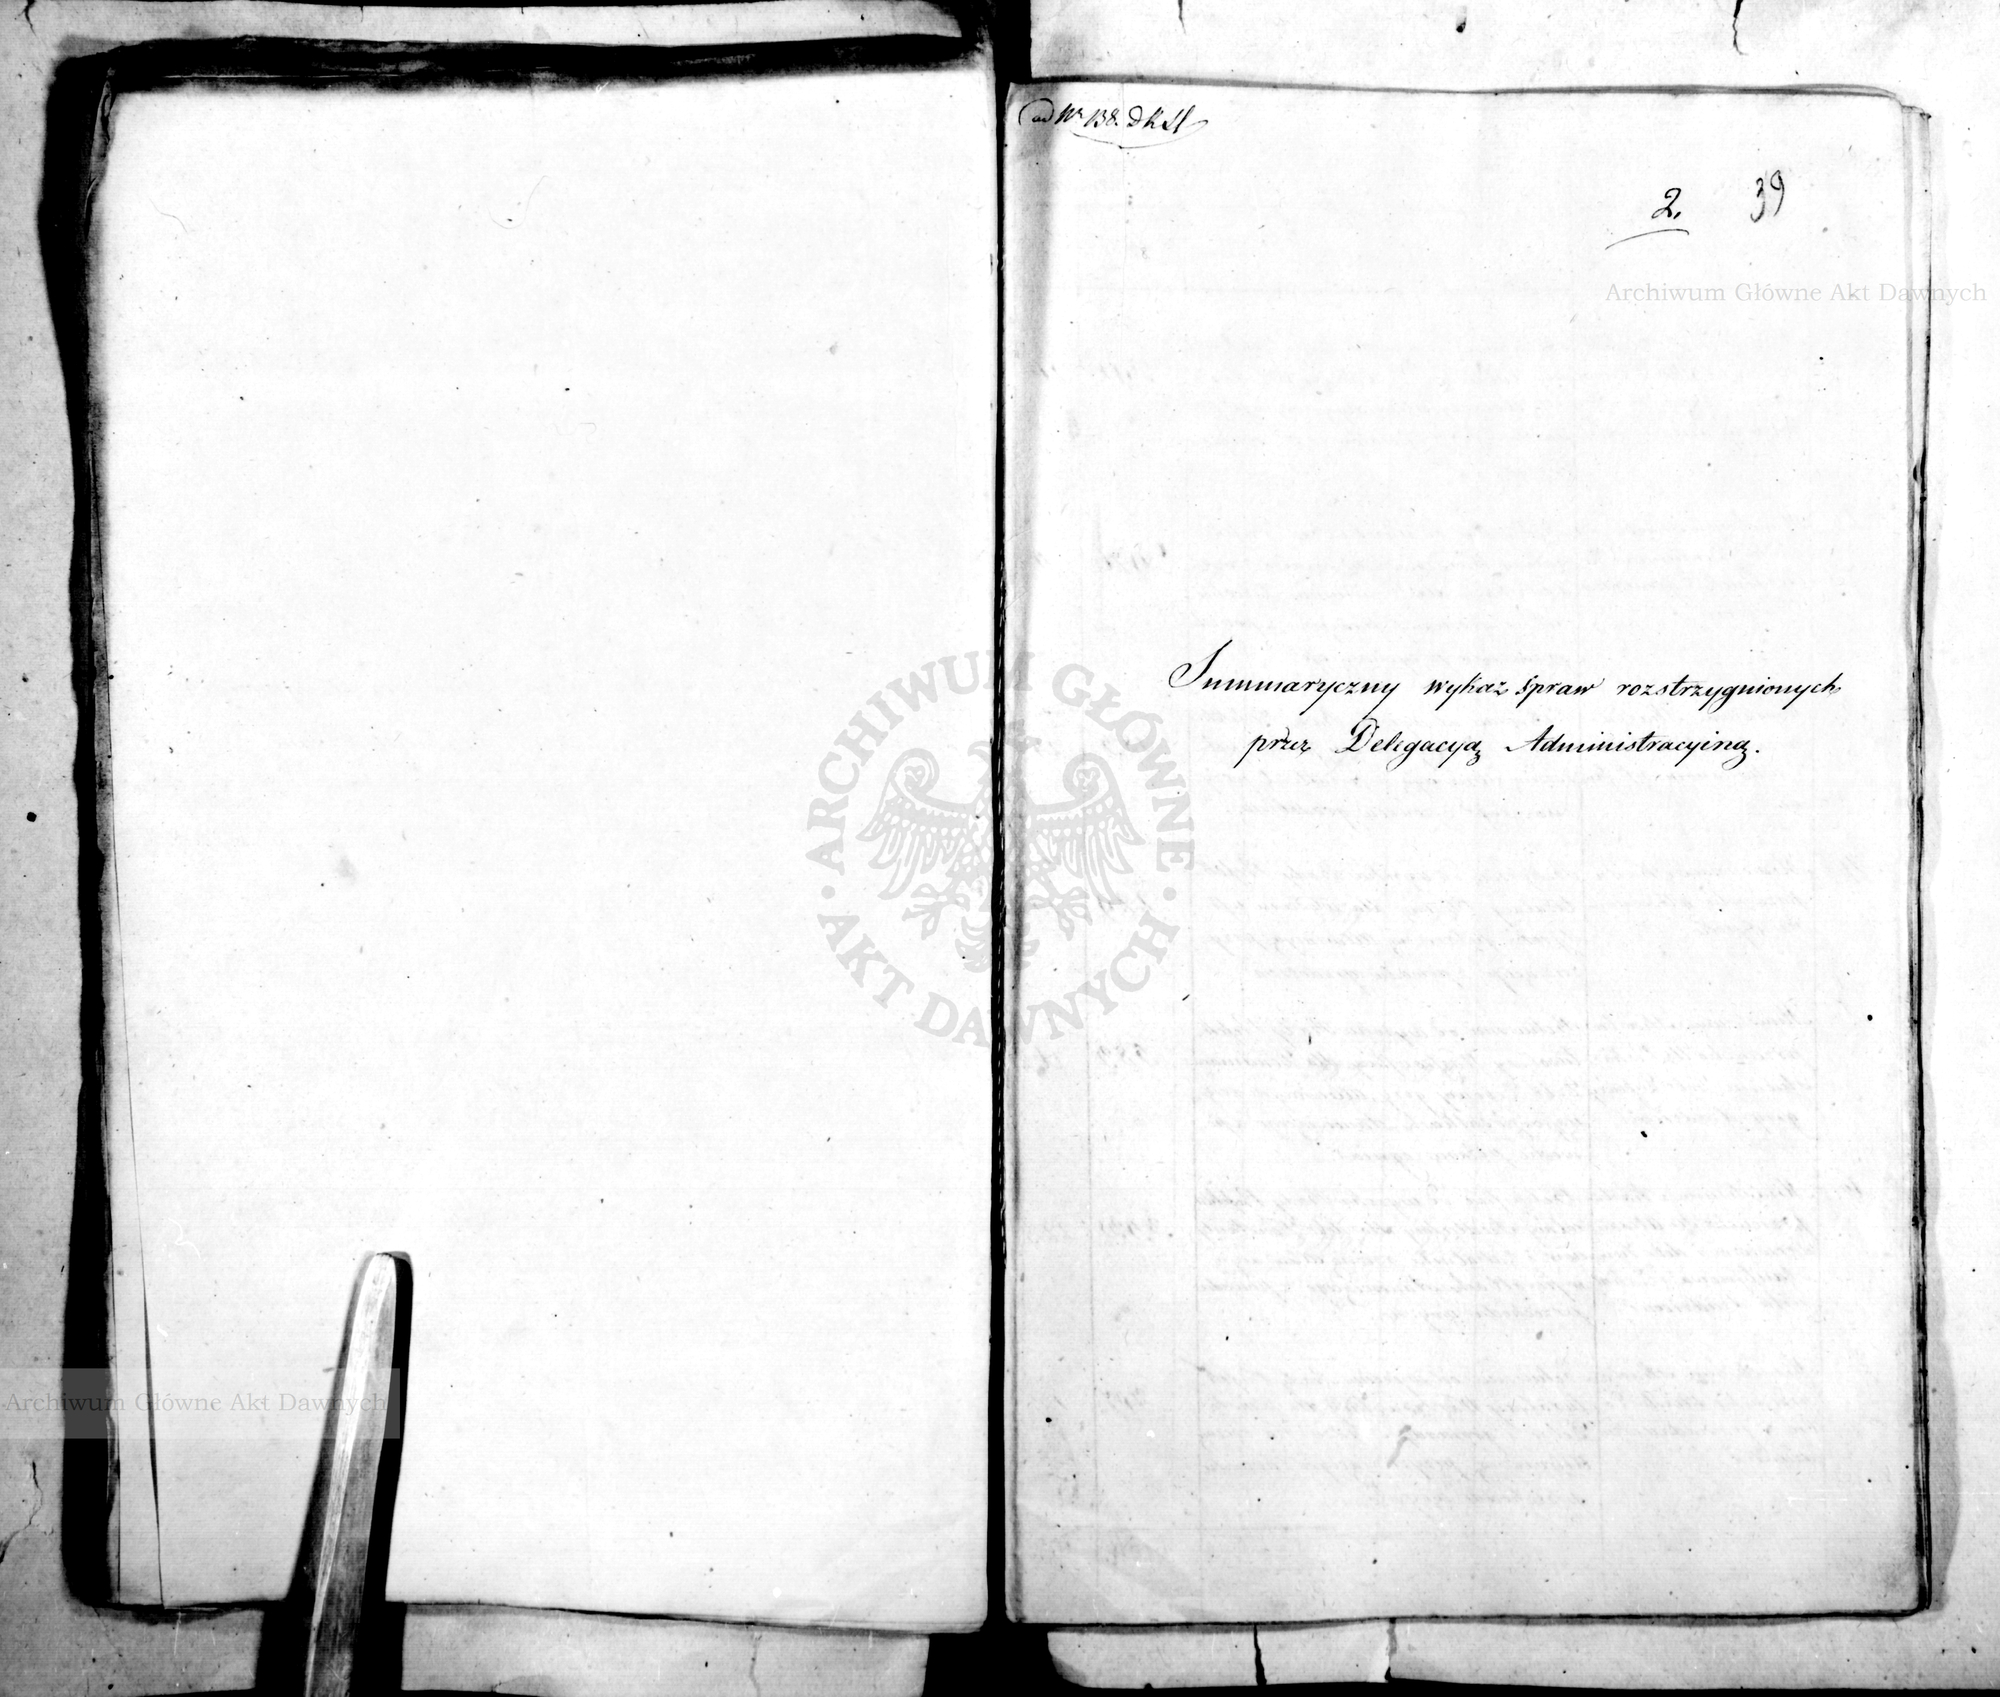 ad Nr 138.
2. 39
Archiwum Główne Akt Dawnych
Summaryczny wykaz spraw rozstrzygnionych
przez Delegacyą Administracyiną.
ARCHIWUM GŁÓWNE
AKT DAWNYCH
Archiwum Główne Akt Dawnych